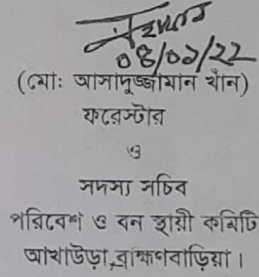 ০৪/০১/২২
(মো: আসাদুজ্জামান খাঁন)
ফরেস্টার
ও
সদস্য সচিব
পরিবেশ ও বন স্থায়ী কমিটি
আখাউড়া,ব্রাহ্মণবাড়িয়া।